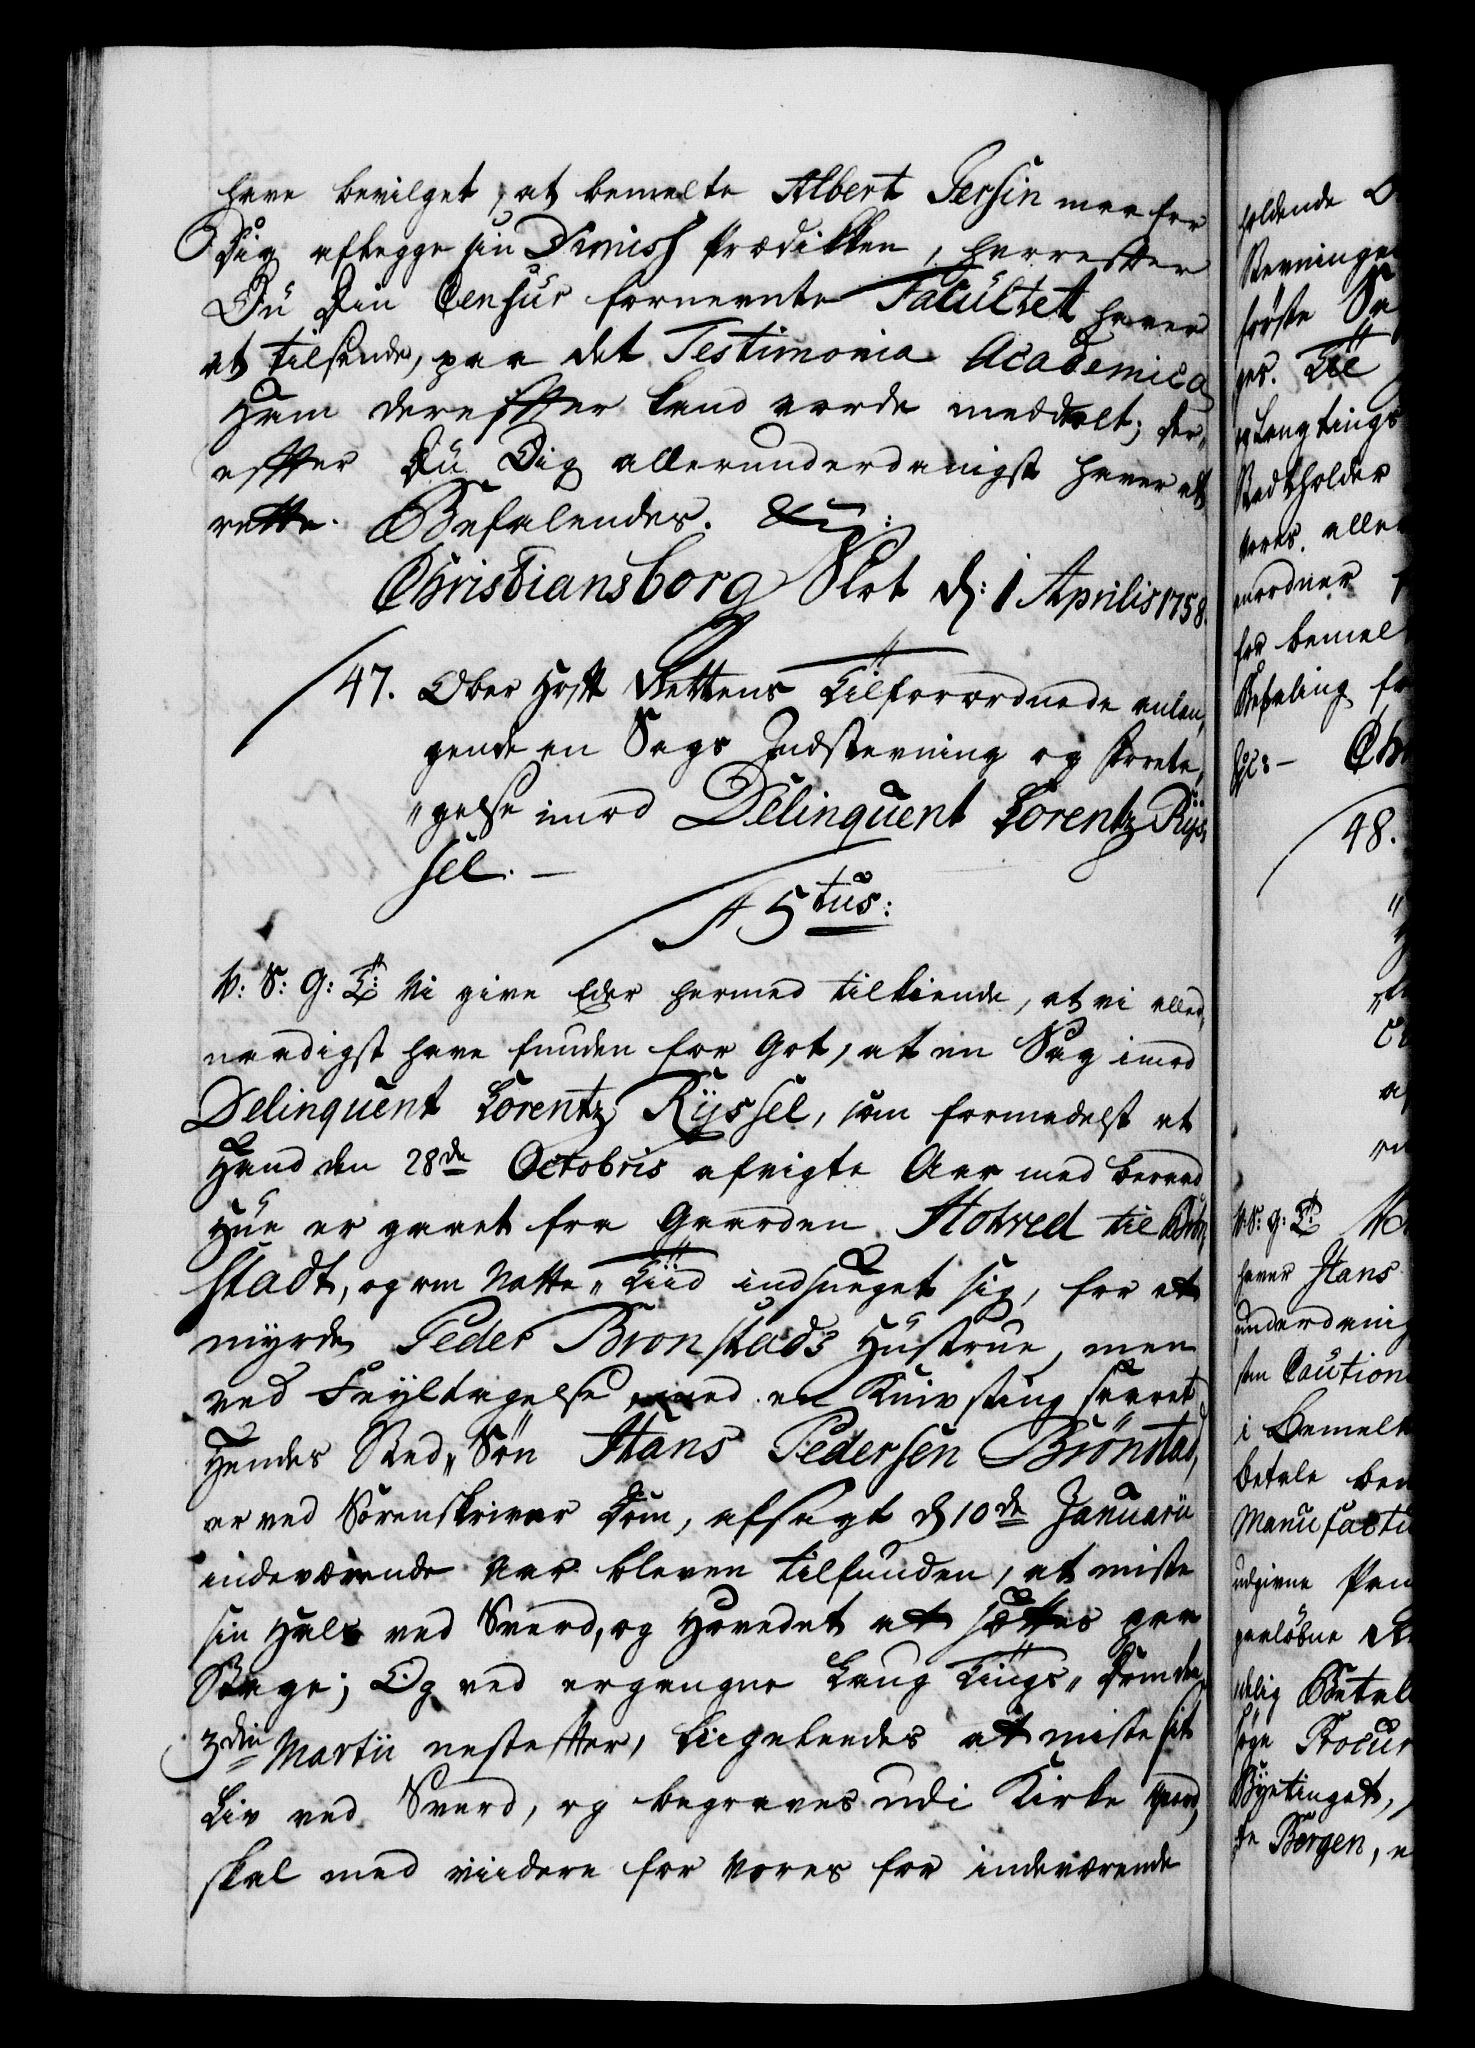 have bevilget, at bemelte Albert Jersin maa for
Dig aflegge sin Dimiss Prædikken, hvorefter
Du Din Censur fornevnte Facultet haver
at tilsende, paa det Testimonia Academica
Ham derefter kand vorde meddelt; der-
efter Du Dig allerunderdanigst haver at
rette. Befalendes. &c:
Christiansborg Slot d: 1 Aprilis 1758.
47. Ober Hoff Rettens Tilforordnede anlan,
gende en Sags Indstevning og foreta,
"gelse imod Delinquent Lorentz Rys,
sel. —
A 5tus:
V: S: G: T: Vi give Eder hermed tilkiende, at vi aller,
naadigst have funden for Got, at en Sag imod
Delinquent Lorentz Ryssel, som formedelst at
Hand den 28de Octobris afvigte Aar med beraad
Hue er gaaet fra Gaarden Hotved til Brön,
stadt, og om Natte-Tiid indsneget sig, for at
myrde Peder Bronstads Hustrue, men
ved Feyltagelse, med en Kniv sting saaret
Hendes Sted-Søn Hans Pedersen Brönstad,
er ved Sorenskriver Dom, afsagt d 10de Januarii
indeværende Aar bleven tilfunden, at miste
sin Hals ved Sverd, og Hovedet at sættes paa
Stage; Og ved ergangne Laug Tings-Dom den
3die Martii nestefter, liigeledes at miste sit
Liv ved Sverd, og begraves udi Kirke Gaard,
skal med viidere for Vores for indeværende
holdende
første
ges. Til
Langtings
Stadtholder
Vores. aller
anordner
for bemel
Befaling
&c: — Chr
48.
V: S: G: T:
haver Hans
underdanig
sten Caution
i Bemelt
betale
Manufactu
udgivne Pen
delig Betal
søge Procur
Byetinget,
Bergen, e